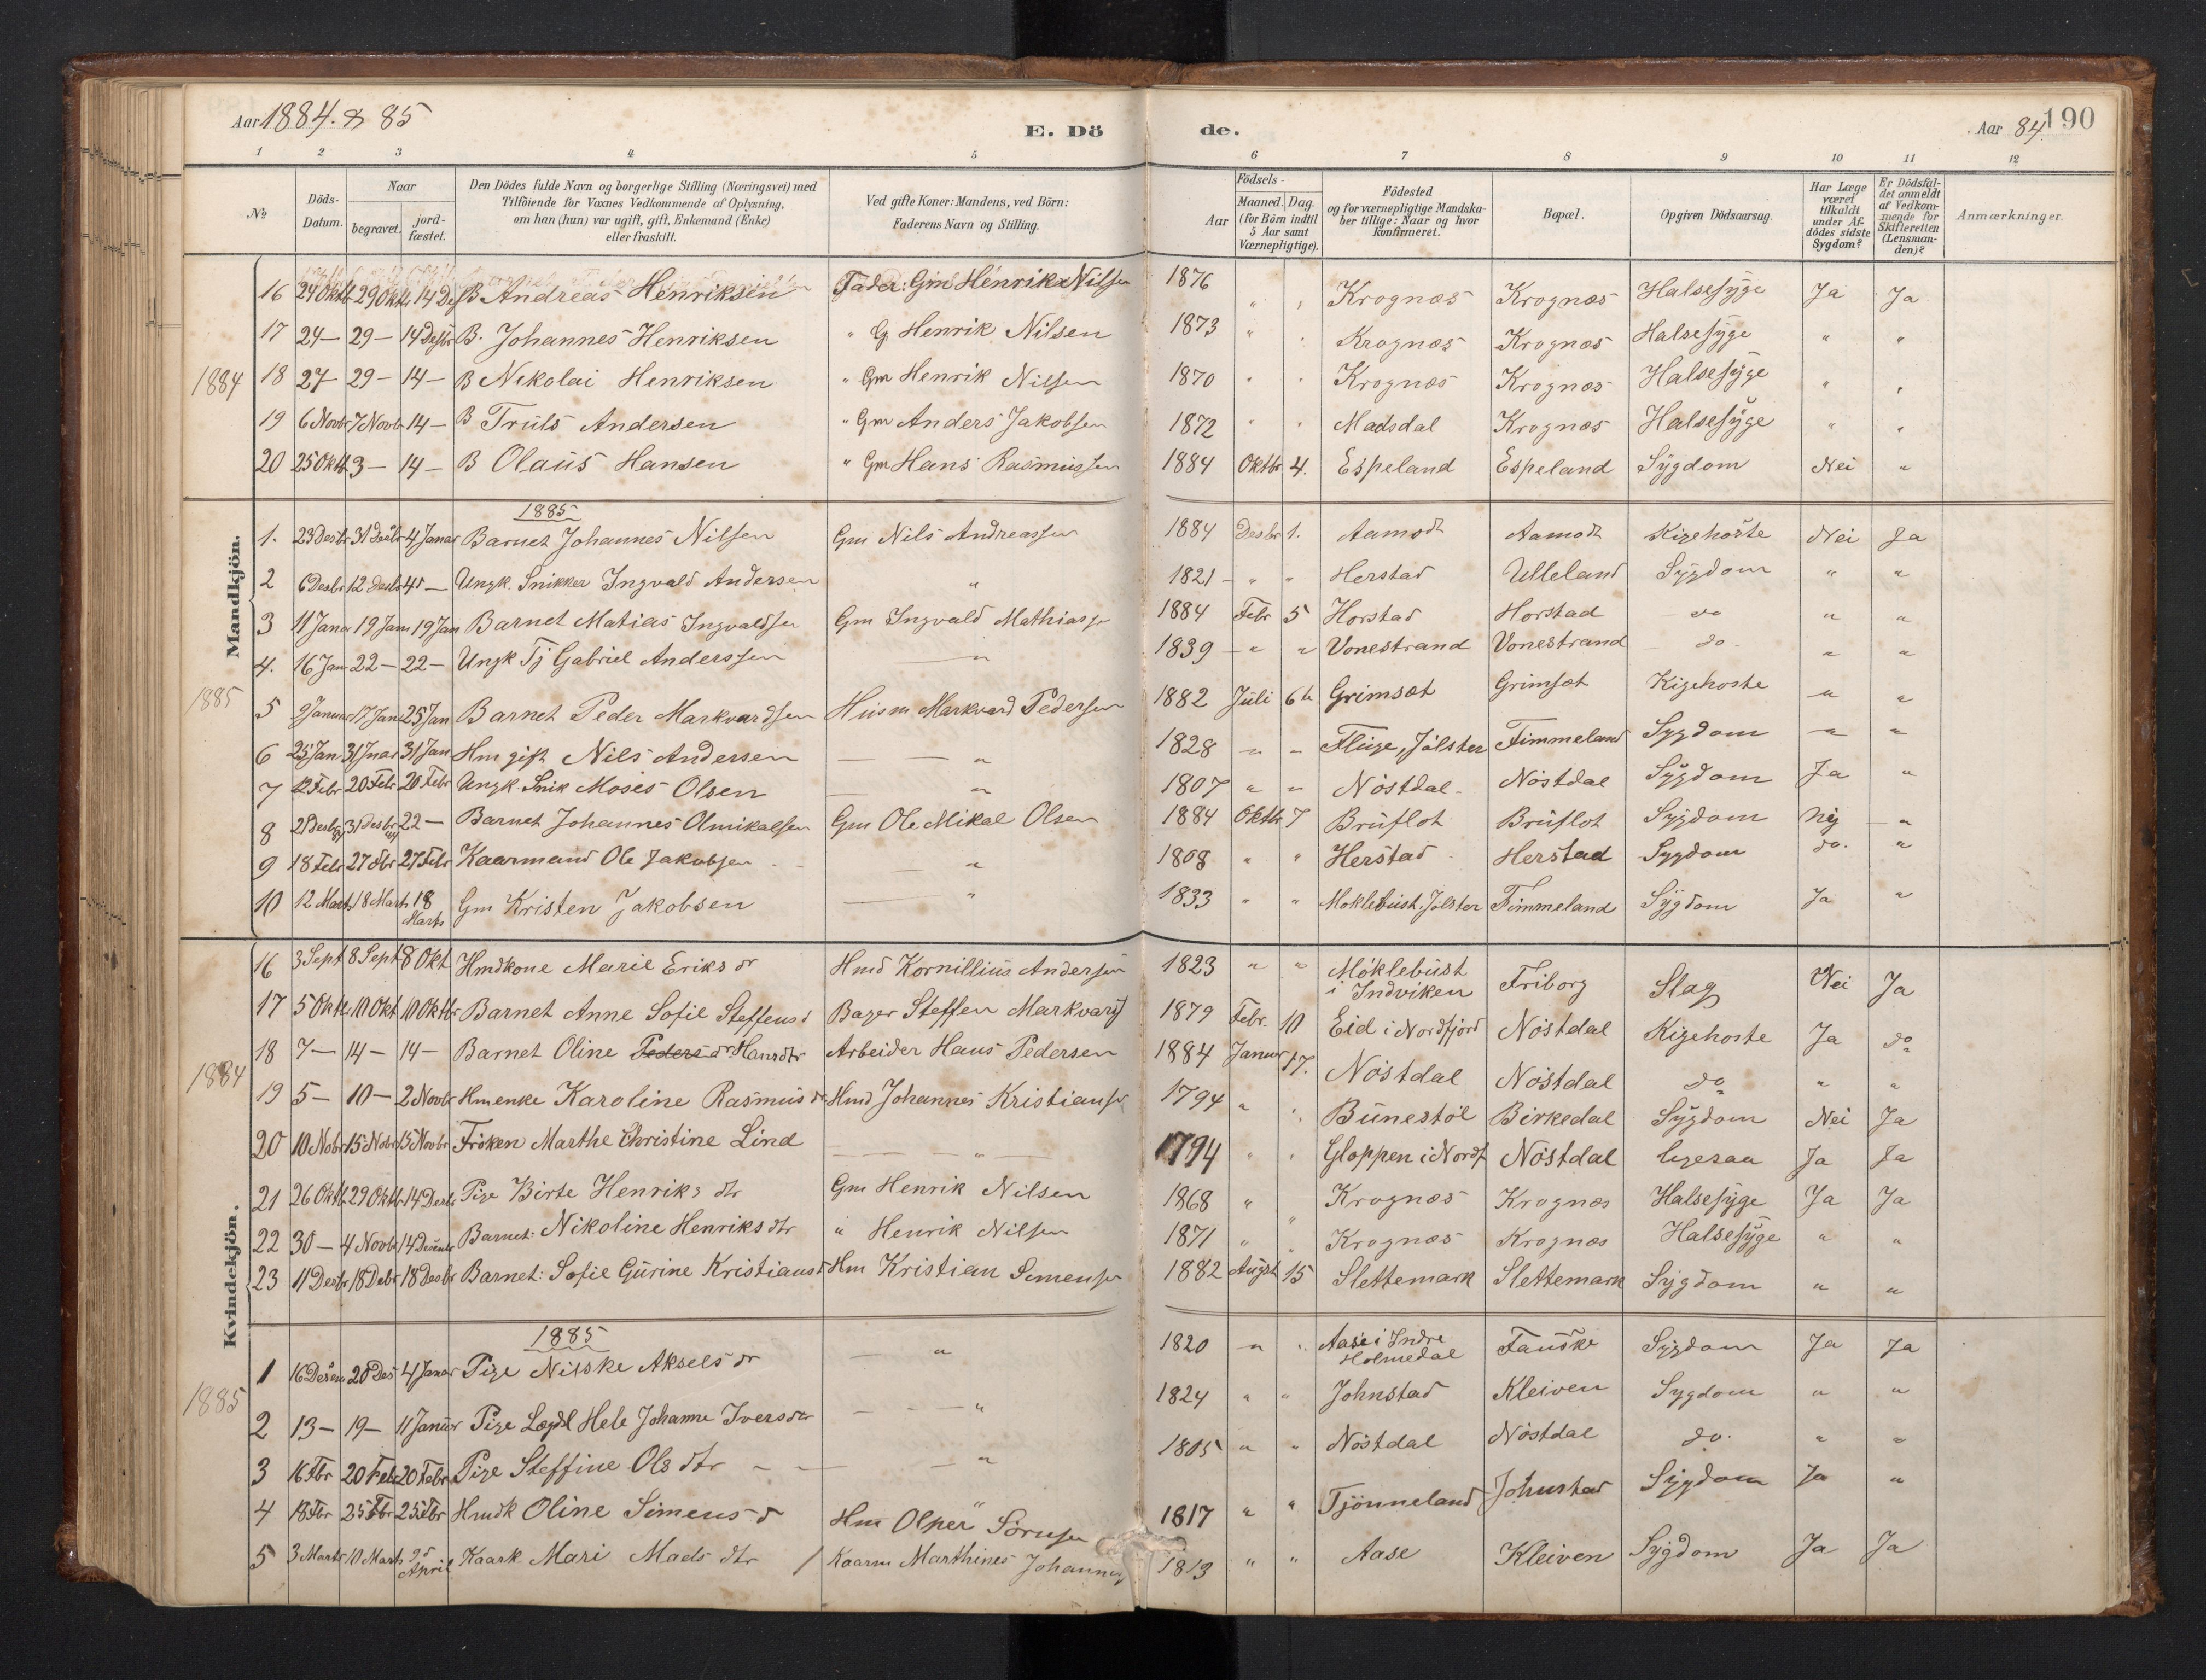 Aar 1884. & 85 E. Dö de. Aar 84. 190
1 2 3 4 5 6 7 8 9 10 11 12
No
Döds-Datum.
Naar begravet. jordfæstet.
Den Dödes fulde Navn og borgerlige Stilling (Næringsvei) med
Tilföiende for Voxnes Vedkommende af Oplysning,
om han (hun) var ugift, gift, Enkemand (Enke)
eller fraskilt.
Ved gifte Koner: Mandens, ved Börn:
Faderens Navn og Stilling.
Födsels-
Aar Maaned. Dag.
(for Börn indtil
5 Aar samt
Værnepligtige).
Födested
og for værnepligtige Mandska-
ber tillige: Naar og hvor
Konfirmeret.
Bopæl.
Opgiven Dödsaarsag.
Har Læge
været
tilkaldt
under Af-
dödes sidste
Sygdom?
Er Dödsfal-
det anmeldt
af Vedkom-
mende for
Skifteretten
(Lensman-
den)?
Anmærkninger.
Mandkjön.
1884
16 24 Oktb 29 Oktb 14 Des B Andreas Henriksen Fader: Gm Henrik Nilsen 1876 " " Krognæs Krognæs Halsesyge Ja Ja
17 24 — 29 — 14 Desbr B. Johannes Henriksen " G. Henrik Nilsen 1873 " " Krognæs Krognæs Halsesyge " "
18 27 — 29 — 14 — B Nikolai Henriksen " Gm Henrik Nilsen 1870 " " Krognæs Krognæs Halsesyge " "
19 6 Novbr 7 Novbr 14 — B Truls Andersen " Gm Anders Jakobsen 1872 " " Madsdal Krognæs Halsesyge " "
20 25 Oktb 3 — 14 — B Olaus Hansen " Gm Hans Rasmussen 1884 Oktbr 4. Espeland Espeland Sygdom Nei "
1885
1. 23 Desbr 31 Desbr 4 Januar Barnet Johannes Nilsen Gm Nils Andreassen 1884 Desbr 1. Aamodt Aamodt Kigehoste Nei Ja
2 6 Desbr 12 Desbr 4 — Ungk. Snikker Ingvald Andersen " 1821 — " " Herstad Ulleland Sygdom " "
3 11 Janu 19 Janu 19 Jan Barnet Matias Ingvaldsen Gm Ingvald Mathiassen 1884 Febr 5 Horstad Horstad do " "
4. 16 Jan 22 — 22 — Ungk Tj Gabriel Anderssen " 1839 — " " Vonestrand Vonestrand do. " "
1885
5 9 Januar 17 Jan 25 Jan Barnet Peder Markvardsen Husm Markvard Pedersen 1882 Juli 6 Grimsæt Grimsæt Kigehoste " "
6 25 Jan 31 Januar 31 Jan Hm gift Nils Andersen — — " 1828 " " Fluge, Jölster Fimmeland Sygdom " "
7 12 Febr 20 Febr 20 Febr Ungk. Snik Moses Olsen — " 1807 " " Nöstdal Nöstdal Sygdom Ja "
8 21 Desbr 84 31 Desbr 84 22 — Barnet Johannes Olmikalsen Gm Ole Mikal Olsen 1884 Oktb 7 Bruflot Bruflot Sygdom Nej "
9 18 Febr 27 Fbr 27 Febr Kaarmand Ole Jakobsen — " 1808 " " Herstad Herstad Sygdom do. "
10 12 Marts 18 Marts 18 Marts Gm Kristen Jakobsen — " 1833 " " Moklebust Jölster Fimmeland Sygdom Ja "
Kvindekjön.
16 3 Sept 8 Sept 8 Okt Hmdkone Marie Eriks dr Hmd Kornillius Andersen 1823 " " Möklebust i Indviken Friborg Slag Nei Ja
17 5 Oktb 10 Okt 10 Oktbr Barnet Anne Sofie Steffens d Bager Steffen Markvards 1879 Febr. 10 Eid i Nordfjord Nöstdal Kigehoste Ja do
1884
18 7 — 14 — 14 — Barnet Oline Peders dr Hans dtr Arbeider Hans Pedersen 1884 Januar 17. Nöstdal Nöstdal do " "
19 5 — 10 — 2 Novbr Hmenke Karoline Rasmus dr Hmd Johannes Kristiansen 1794 " " Bunestöl Birkedal Sygdom Nei Ja
20 10 Nobr 15 Nobr 15 Novbr Fröken Marthe Christine Lind — — " — 1794 " " Gloppen i Nordf Nöstdal Ja Ja
21 26 Oktb 29 Oktb 14 Desbr Pige Birte Henriks dtr Gm Henrik Nilsen 1868 " " Krognæs Krognæs Halsesyge Ja Ja
22 30 — 4 Novbr 14 Barnet: Nikoline Henriks dtr " Henrik Nilsen 1871 " " Krognæs Krognæs Halsesyge " "
23 11 Desbr 18 Debr 18 Desbr Barnet: Sofie Gurine Kristians d Hm Kristian Simensen 1882 August 15 Slettemark Slettemark Sygdom " "
1885
1 16 28 Des 4 Januar Pige Nilske Aksels dr — " 1820 " " Aase i Indre Holmedal Fauske Sygdom Ja Ja
1885
2 13 — 19 — 11 Januar Pige Lægdl Hele Johanne Ivers dtr — — — " 1824 " " Johnstad Kleiven Sygdom " "
3 16 Fbr 20 Febr 20 Febr Pige Steffine Ols dtr — — — " 1805 " " Nöstdal Nöstdal do. " "
4 18 Fbr 25 Fbr 25 Fbr Hmdk Oline Simens d Hm Olper Sörnsen 1817 " " Tjönneland Johnstad Sygdom Ja "
5 3 Marts 10 Marts April Kaark Mari Mads dtr Kaarm Marthines Johannes 1813 " " Aase Kleiven Sygdom Ja Ja